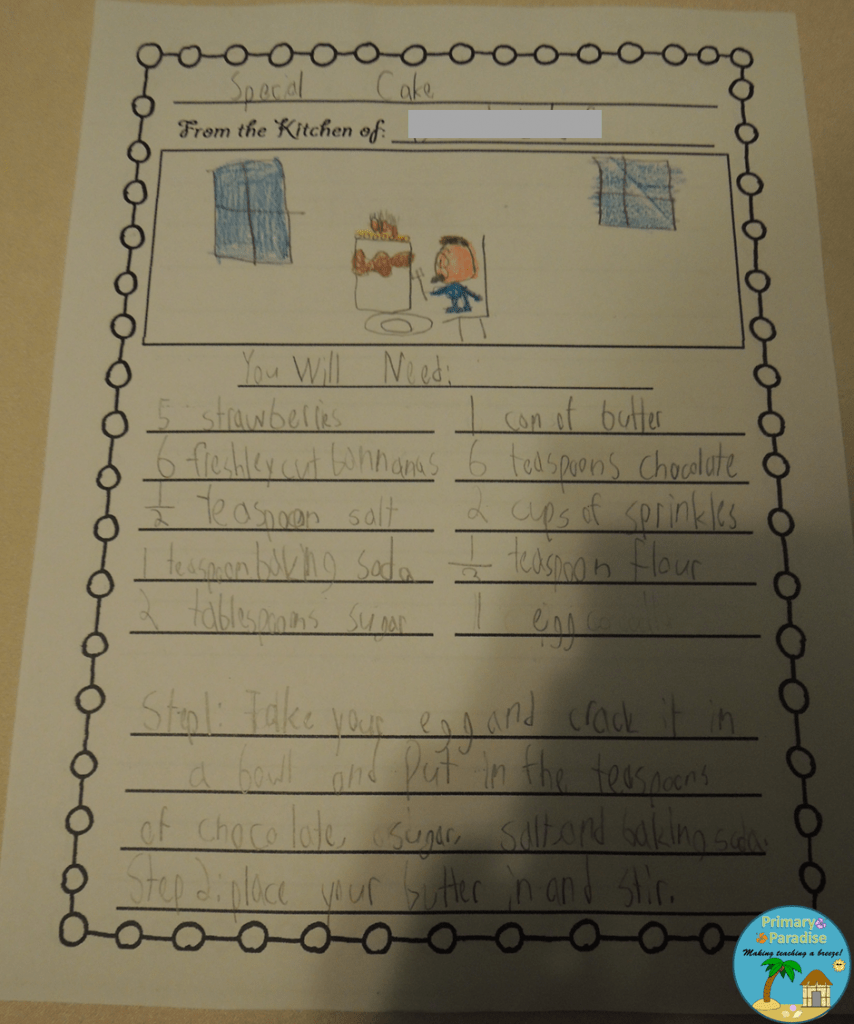 Special Cake
From the Kitchen of:
You Will Need:
5 strawberries
1 can of butter
6 freshley cut bannanas
6 teaspoons chocolate
1/2 teaspoon salt
2 cups of sprinkles
1 teaspoon baking soda
1/2 teaspoon flour
2 tablespoons sugar
1 egg
Step 1: Take your egg and crack it in
a bowl and Put in the teaspoons
of chocolate, sugar, salt and baking soda.
Step 2: place your butter in and stir.
Primary
Paradise
Making teaching a breeze!